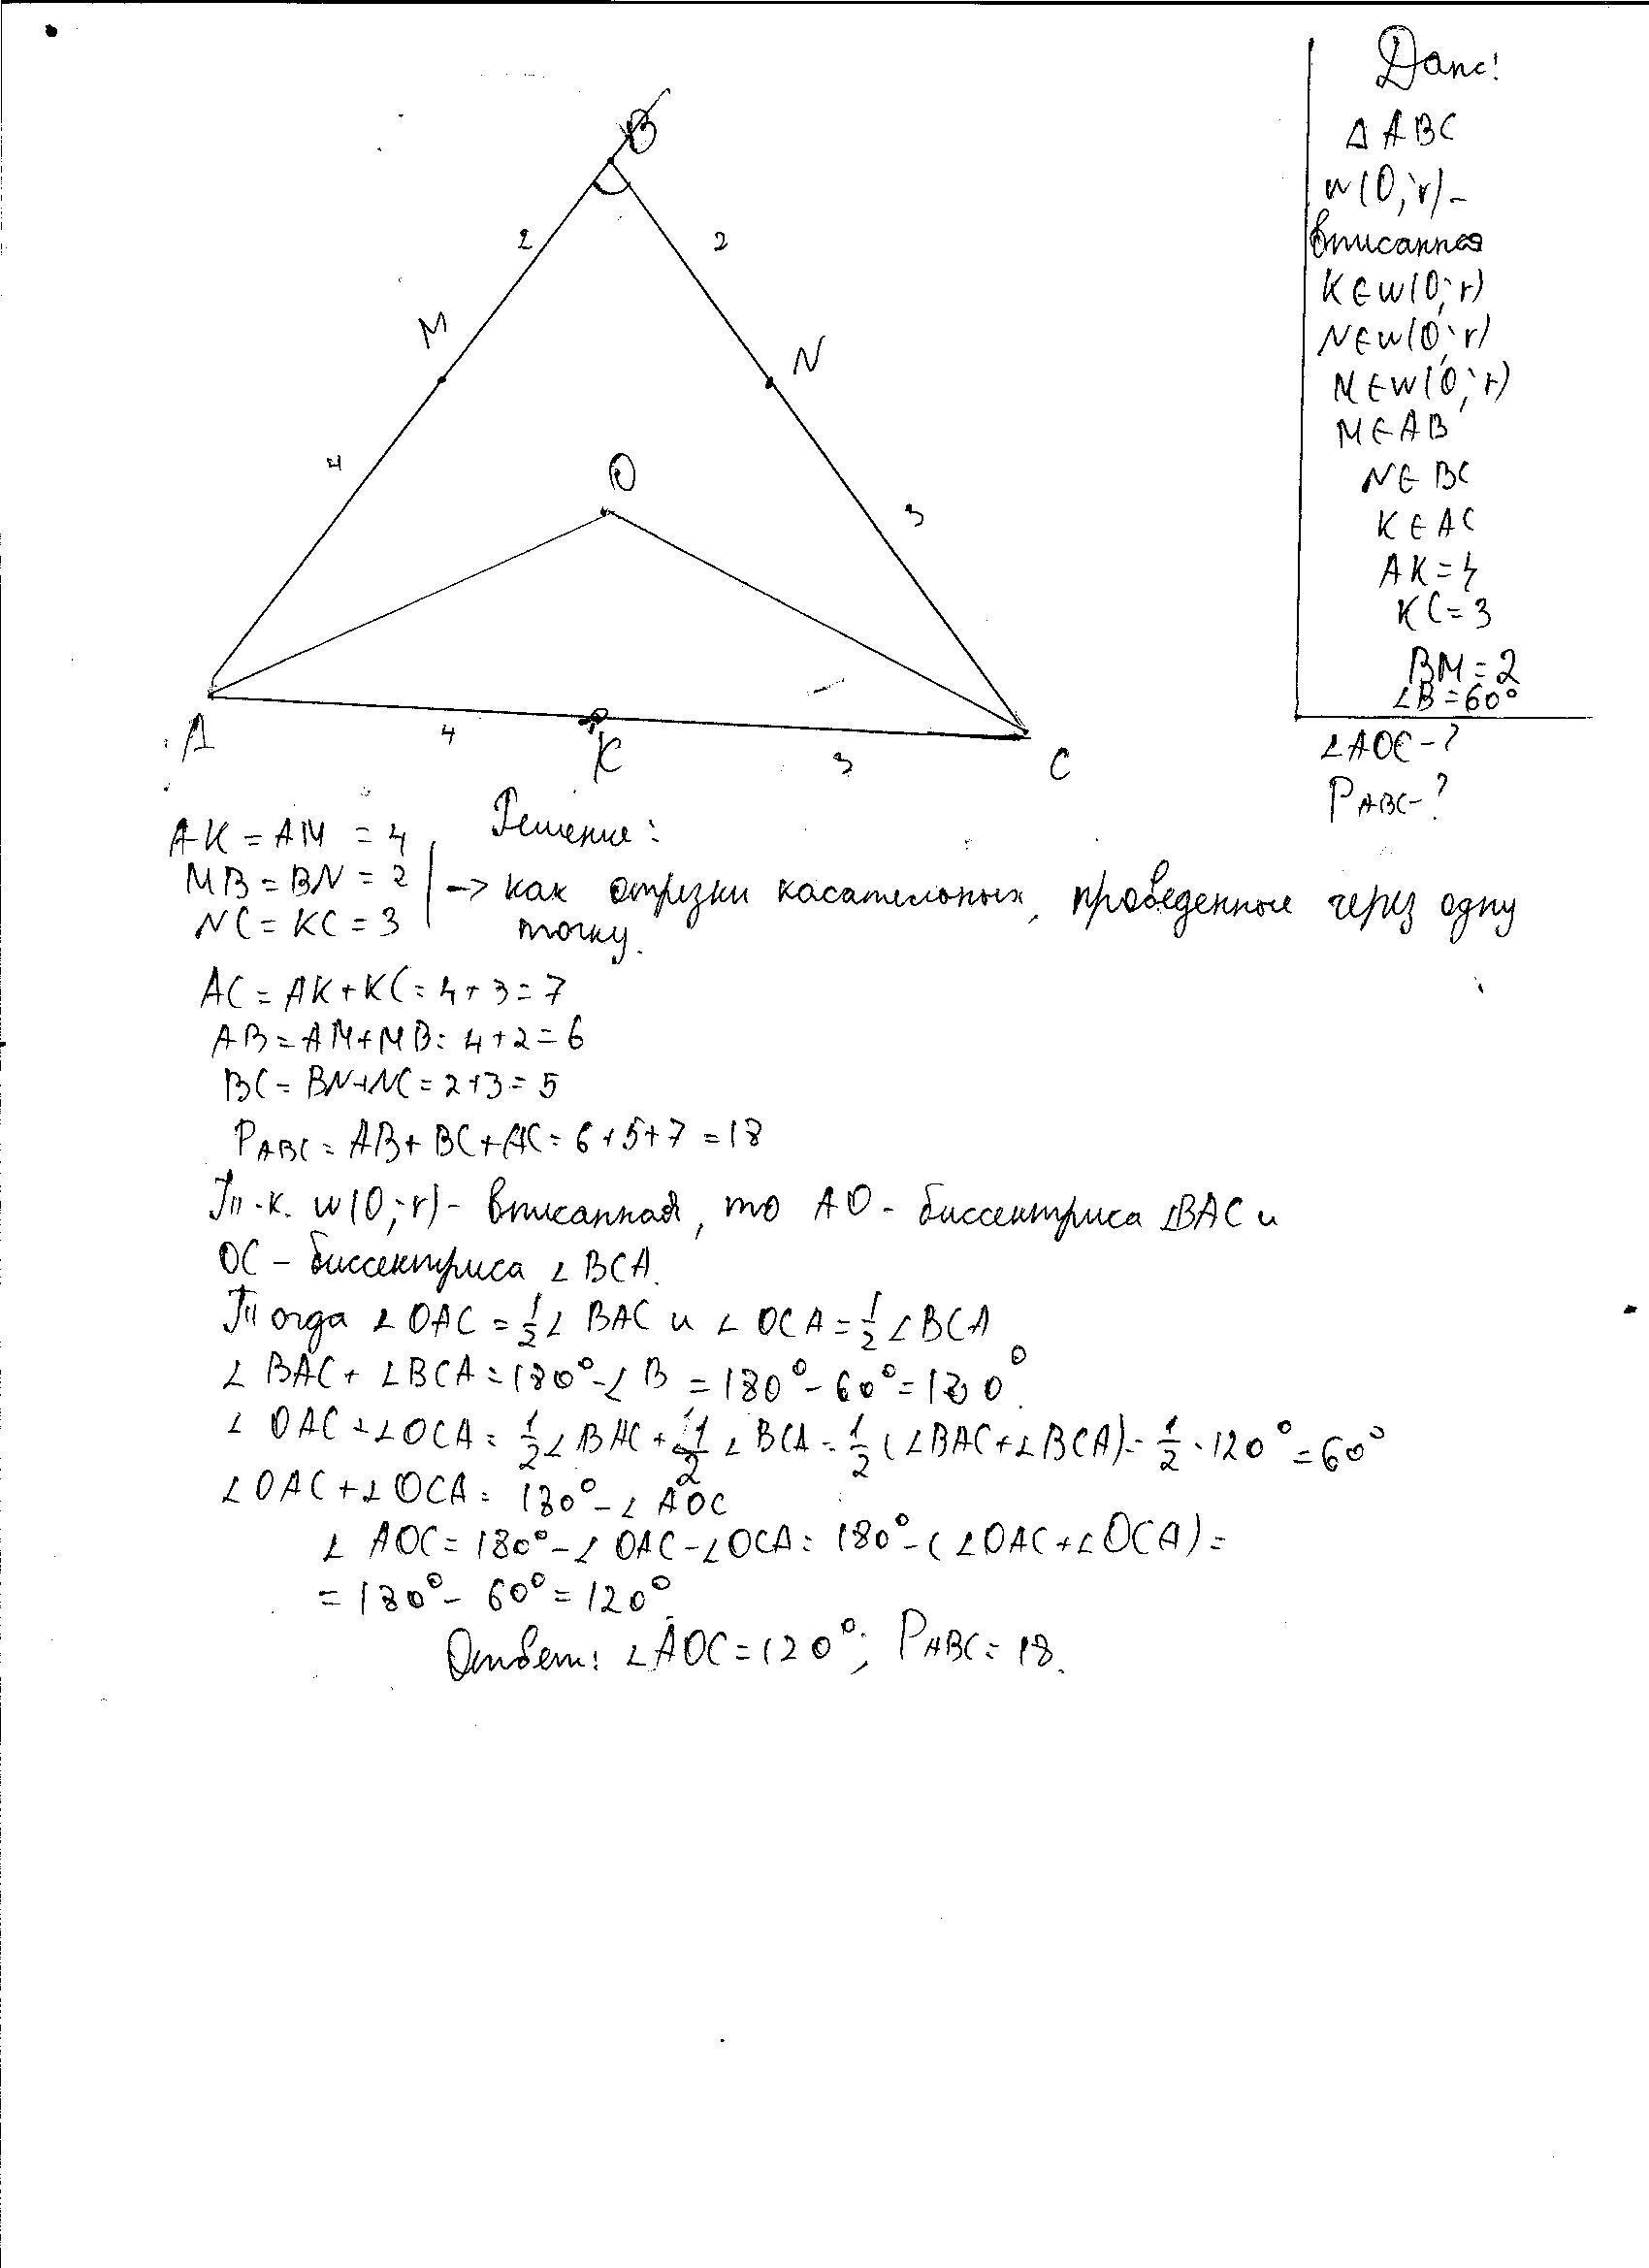 Дано:
Δ ABC
w(O;r) -
вписанная
K∈w(O;r)
N∈w(O;r)
M∈w(O;r)
M∈AB
N∈BC
K∈AC
AK=4
KC=3
BM=2
∠B=60°
∠AOC-?
P ABC-?
B
2
2
M
N
4
O
3
A
4
K
3
C
Решение:
AK=AM=4
MB=BN=2
NC=KC=3
-> как отрезки касательных, проведенные через одну
точку.
AC=AK+KC=4+3=7
AB=AM+MB=4+2=6
BC=BN+NC=2+3=5
P ABC=AB+BC+AC=6+5+7=18
Т.к. w(O;r)- вписанная, то AO - биссектриса ∠BAC и
OC - биссектриса ∠BCA.
Тогда ∠OAC=1/2∠BAC и ∠OCA=1/2∠BCA
∠BAC+∠BCA=180°-∠B=180°-60°=120°.
∠OAC+∠OCA=1/2∠BAC+1/2∠BCA=1/2(∠BAC+∠BCA)=1/2·120°=60°
∠OAC+∠OCA=180°-∠AOC
∠AOC=180°-∠OAC-∠OCA=180°-(∠OAC+∠OCA)=
=180°-60°=120°.
Ответ: ∠AOC=120°; P ABC=18.